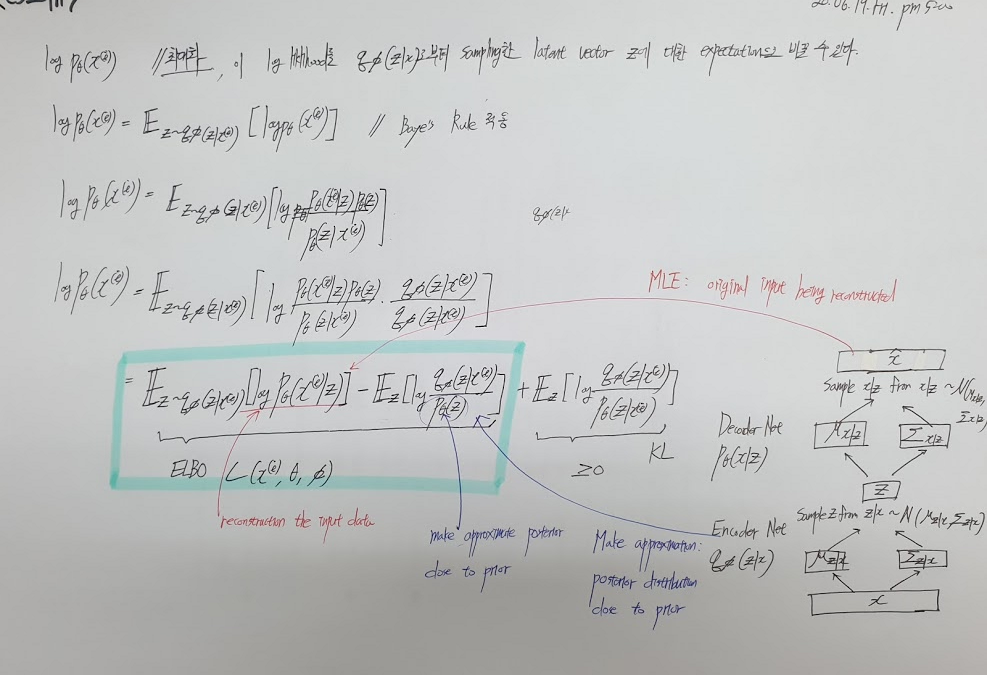 20.06.19.Fri. pm 5:00
log pθ(x⁽ⁱ⁾) //최대화, 이 log likelihood를 qφ(z|x)로부터 sampling한 latent vector z에 대한 expectation으로 바꿀 수 있다.
log pθ(x⁽ⁱ⁾) = E z~qφ(z|x⁽ⁱ⁾) [log pθ(x⁽ⁱ⁾)] // Baye's Rule 적용
log pθ(x⁽ⁱ⁾) = E z~qφ(z|x⁽ⁱ⁾) [log pθ(x⁽ⁱ⁾|z) pθ(z) / pθ(z|x⁽ⁱ⁾)]
qφ(z|x
log pθ(x⁽ⁱ⁾) = E z~qφ(z|x⁽ⁱ⁾) [log pθ(x⁽ⁱ⁾|z) pθ(z) / pθ(z|x⁽ⁱ⁾) · qφ(z|x⁽ⁱ⁾) / qφ(z|x⁽ⁱ⁾)]
MLE: original input being reconstructed
= E z~qφ(z|x⁽ⁱ⁾) [log pθ(x⁽ⁱ⁾|z)] - Ez [log qφ(z|x⁽ⁱ⁾) / pθ(z)] + Ez [log qφ(z|x⁽ⁱ⁾) / pθ(z|x⁽ⁱ⁾)]
ELBO L(x⁽ⁱ⁾, θ, φ)
≥0
KL
reconstruction the input data
make approximate posterior
close to prior
Make approximation:
posterior distribution
close to prior
x̂
Sample x|z from x|z ~ N(μx|z, Σx|z)
μx|z Σx|z
Decoder Net
pθ(x|z)
z
Sample z from z|x ~ N(μz|x, Σz|x)
Encoder Net
qφ(z|x)
μz|x Σz|x
x